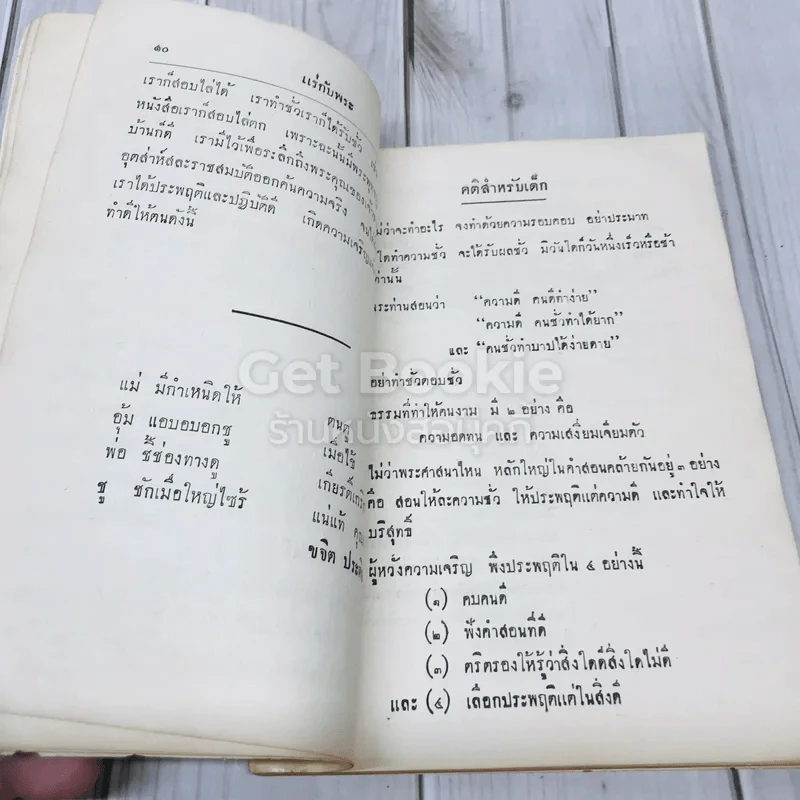 ๘๐
แร่กับพระ
เราก็สอบไล่ได้ เราทำชั่วเราก็ได้รับชั่ว
หนังสือเราก็สอบไล่ตก เพราะฉะนั้นมีพระพุทธ
บ้านก็ดี เรามีไว้เพื่อระลึกถึงพระคุณของ
อุตส่าห์สละราชสมบัติออกค้นความจริง จน
เราได้ประพฤติและปฏิบัติดี เกิดความเจริญ
ทำดีให้ตนดังนี้
แม่ มีกำเหนิดให้ ตนดู
อุ้ม แอบอบอกชู เมื่อใช้
พ่อ ชี้ช่องทางดู เกียรติ
ชู ชักเมื่อใหญ่ไซร้ แน่แท้ คุณ
ขจิต ประ
คติสำหรับเด็ก
ไม่ว่าจะทำอะไร จงทำด้วยความรอบคอบ อย่าประมาท
ใดทำความชั่ว จะได้รับผลชั่ว มิวันใดก็วันหนึ่งเร็วหรือช้า
เท่านั้น
พระท่านสอนว่า “ความดี คนดีทำง่าย”
“ความดี คนชั่วทำได้ยาก”
และ “คนชั่วทำบาปได้ง่ายดาย”
อย่าทำชั่วตอบชั่ว
ธรรมที่ทำให้คนงาม มี ๒ อย่าง คือ
ความอดทน และ ความเสงี่ยมเจียมตัว
ไม่ว่าพระศาสนาไหน หลักใหญ่ในคำสอนคล้ายกันอยู่ ๓ อย่าง
คือ สอนให้ละความชั่ว ให้ประพฤติแต่ความดี และทำใจให้
บริสุทธิ์
ผู้หวังความเจริญ พึงประพฤติใน ๔ อย่างนี้
(๑) คบคนดี
(๒) ฟังคำสอนที่ดี
(๓) ตริตรองให้รู้ว่าสิ่งใดดีสิ่งใดไม่ดี
และ (๔) เลือกประพฤติแต่ในสิ่งดี
Get Bookie
ร้านหนังสือนุกกี้